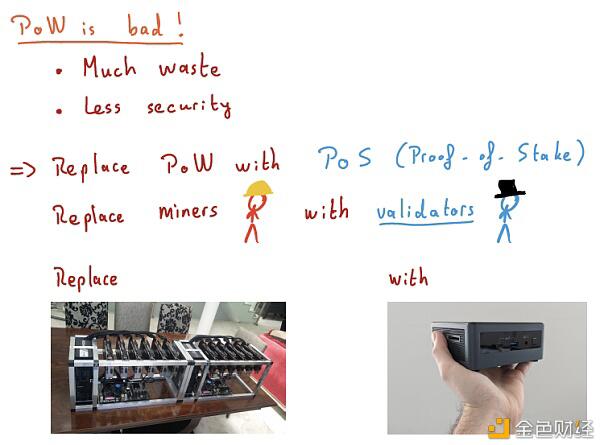 PoW is bad!
• Much waste
• Less security
=> Replace PoW with PoS (Proof-of-Stake)
Replace miners with validators
Replace with
金色财经